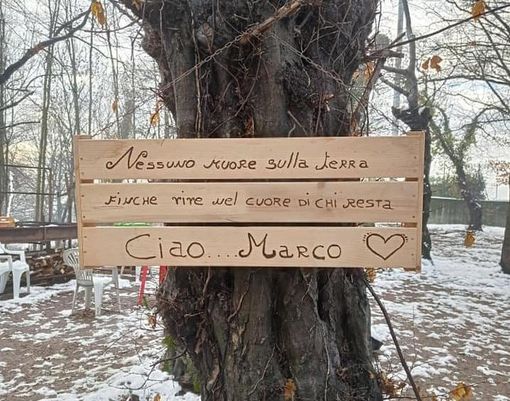 Nessuno muore sulla terra
finche vive nel cuore di chi resta
Ciao.... Marco ♡